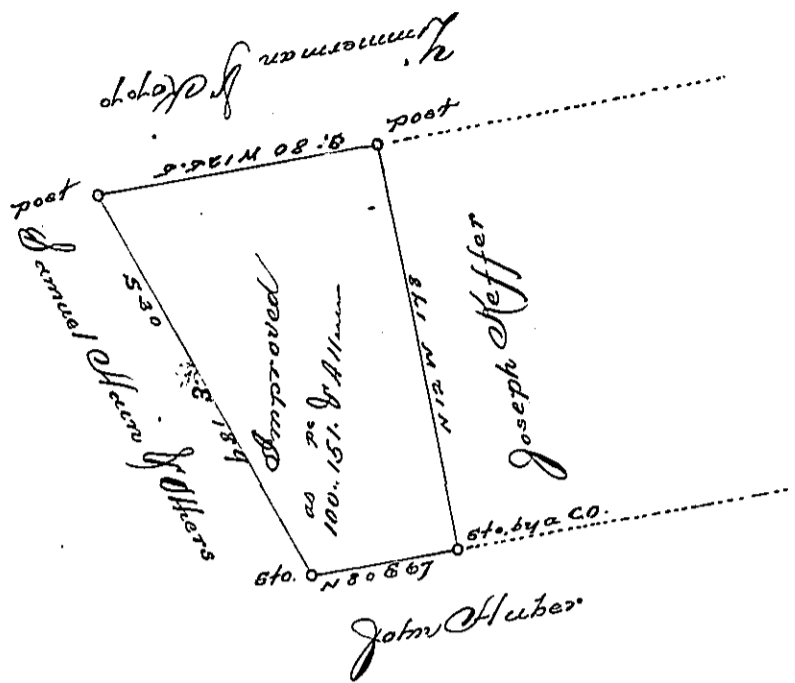 Zimmerman &
post
S. 80 W 125.5
post
Samuel Hain & Others
S 30
E 189
Improved
as ps
100..151. & Allwce
N 12 W 178
Joseph Keffer
Sto. by a C.O.
Sto.
N 80 E 67
John Huber